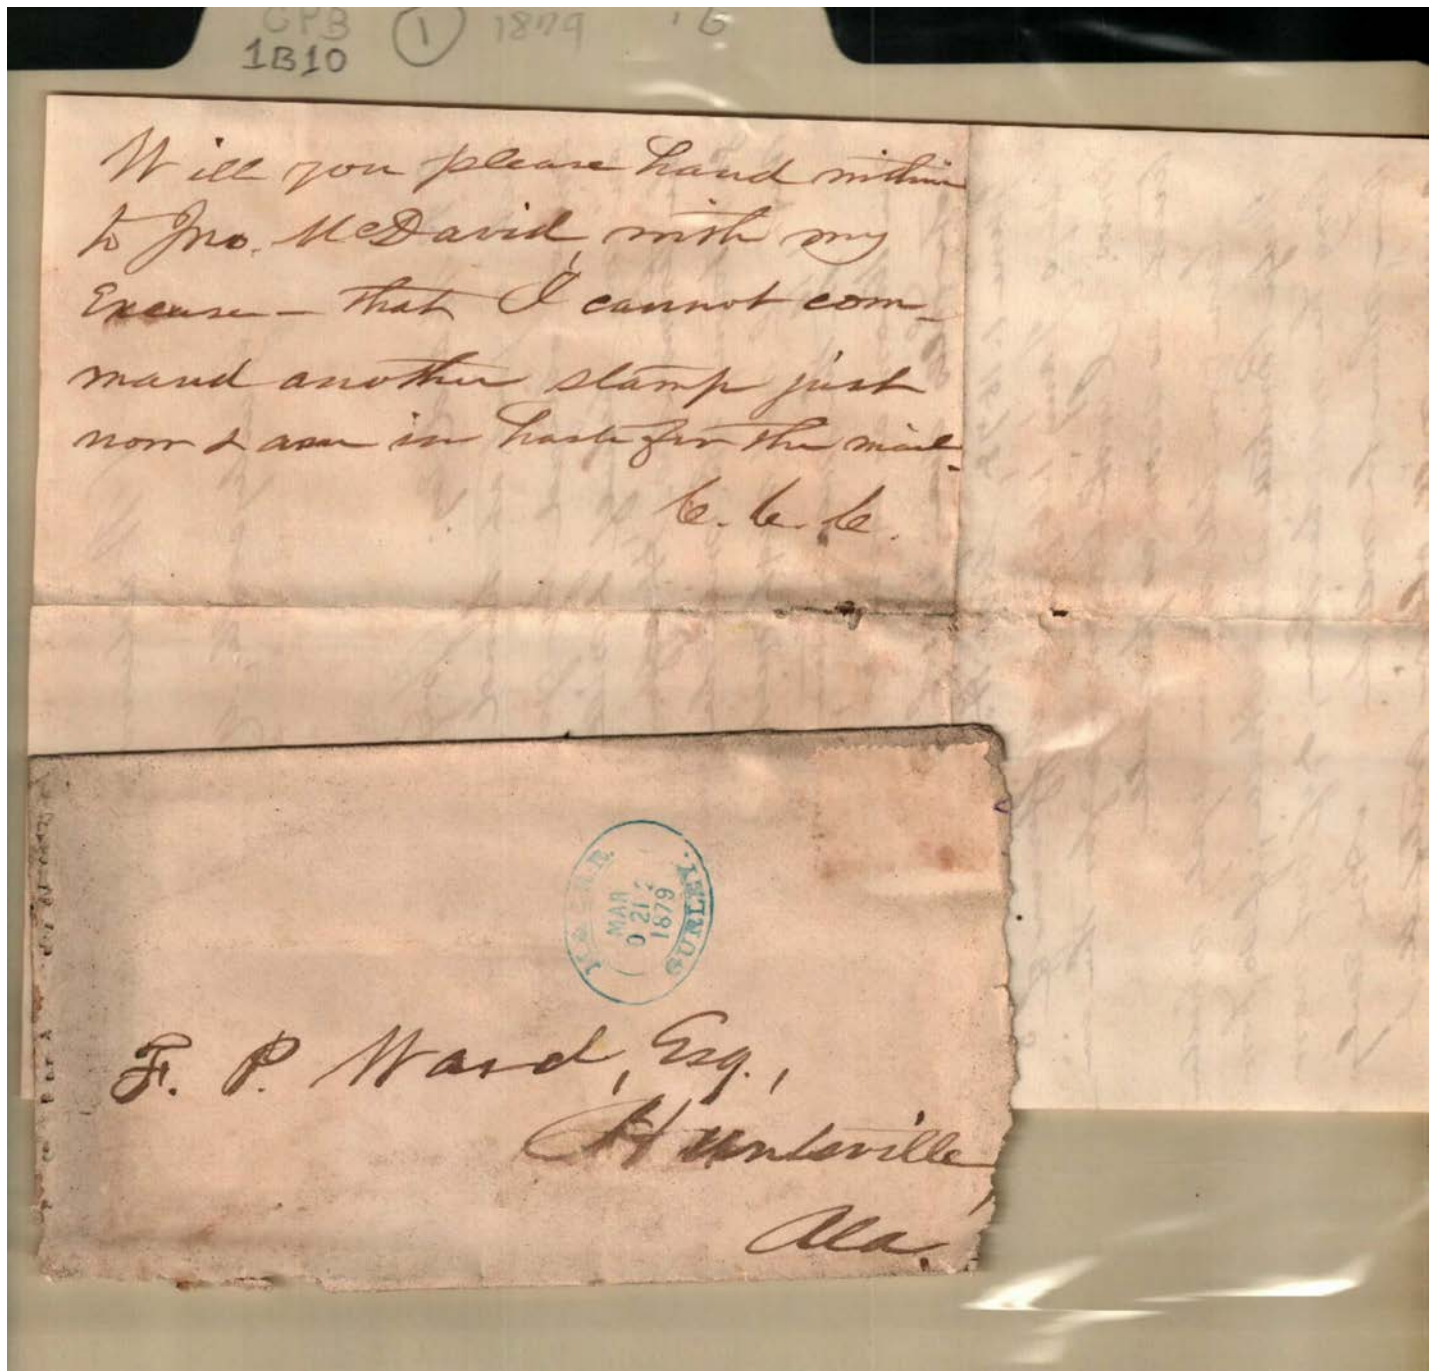 CPB ① 1879
1B10
Will you please hand within
to Jno. McDavid, with my
Excuse – that I cannot com-
mand another stamp just
now & am in haste for the mail.
C. C. C.
MAR
21
1879
GURLEY
F. P. Ward, Esq.,
Huntsville,
Ala.